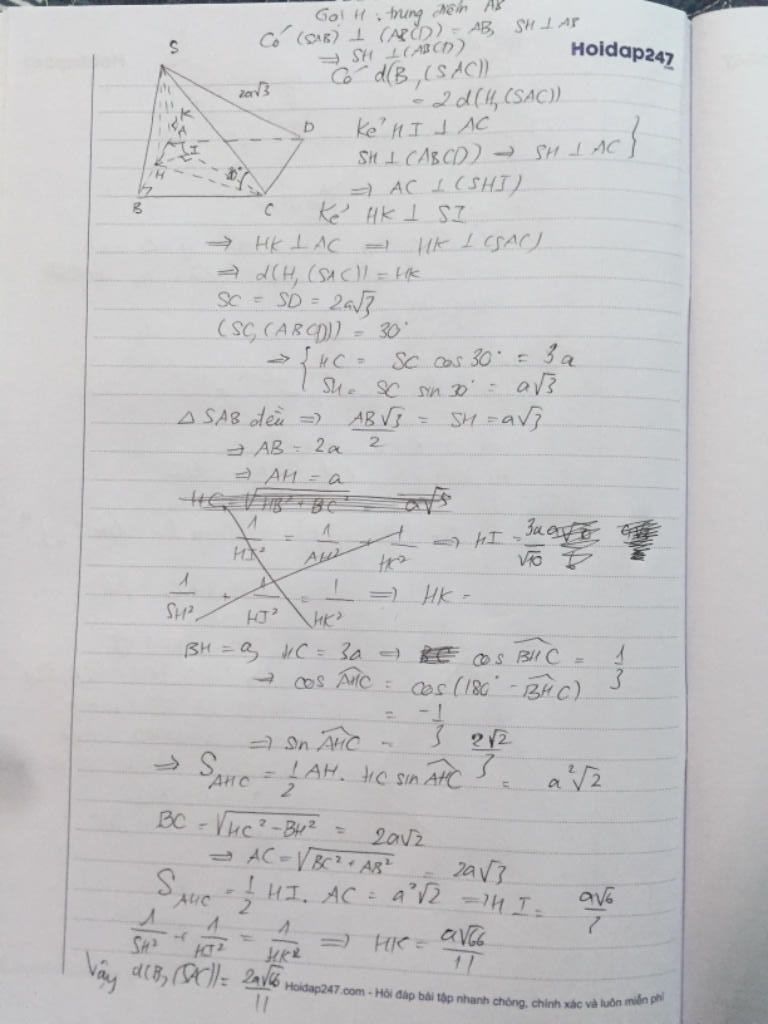 Gọi H : trung điểm AB
Có (SAB) ⊥ (ABCD) = AB, SH ⊥ AB
⇒ SH ⊥ (ABCD)
Hoidap247
Có d(B, (SAC))
= 2 d(H, (SAC))
Kẻ HI ⊥ AC
SH ⊥ (ABCD) → SH ⊥ AC }
⇒ AC ⊥ (SHI)
S
2a√3
K
A
D
I
H
30°
B
C
Kẻ HK ⊥ SI
⇒ HK ⊥ AC ⇒ HK ⊥ (SAC)
⇒ d(H, (SAC)) = HK
SC = SD = 2a√3
(SC, (ABCD)) = 30°
⇒ { HC = SC cos 30° = 3a
SH = SC sin 30° = a√3
Δ SAB đều ⇒ AB√3/2 = SH = a√3
⇒ AB = 2a
⇒ AH = a
HC = √HB² + BC² = a√5
1/HI² = 1/AH² + 1/HK² ⇒ HI = 3a/√10
1/SH² + 1/HI² = 1/HK² ⇒ HK =
BH = a, HC = 3a ⇒ cos BHC = 1/3
→ cos AHC = cos (180° - BHC)
= -1/3
⇒ sin AHC = 2√2/3
⇒ S AHC = 1/2 AH. HC sin AHC = a²√2
BC = √HC² - BH² = 2a√2
⇒ AC = √BC² + AB² = 2a√3
S AHC = 1/2 HI. AC = a²√2 ⇒ HI = a√6/3
1/SH² + 1/HI² = 1/HK² ⇒ HK = a√66/11
Vậy d(B, (SAC)) = 2a√66/11
Hoidap247.com - Hỏi đáp bài tập nhanh chóng, chính xác và luôn miễn phí